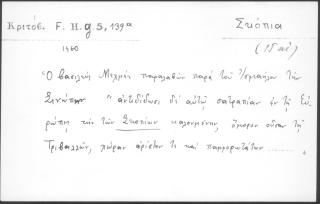 Κριτόβ. F. H. g 5, 139ᵃ
Σκόπια
1460
(15 αἰ)
Ὁ βασιλεὺς Μεχμὲτ παραλαβὼν παρὰ τοῦ Ἰσμαήλου τὴν
Σινώπην " ἀντιδίδωσι δὲ αὐτῷ σατραπίαν ἐν τῇ Εὐ-
ρώπῃ τὴν τῶν Σκοπίων καλουμένην, ὅμορον οὖσαν τῇ
Τριβαλλῶν, χώραν ἀρίστην τε καὶ παμφορωτάτην ......